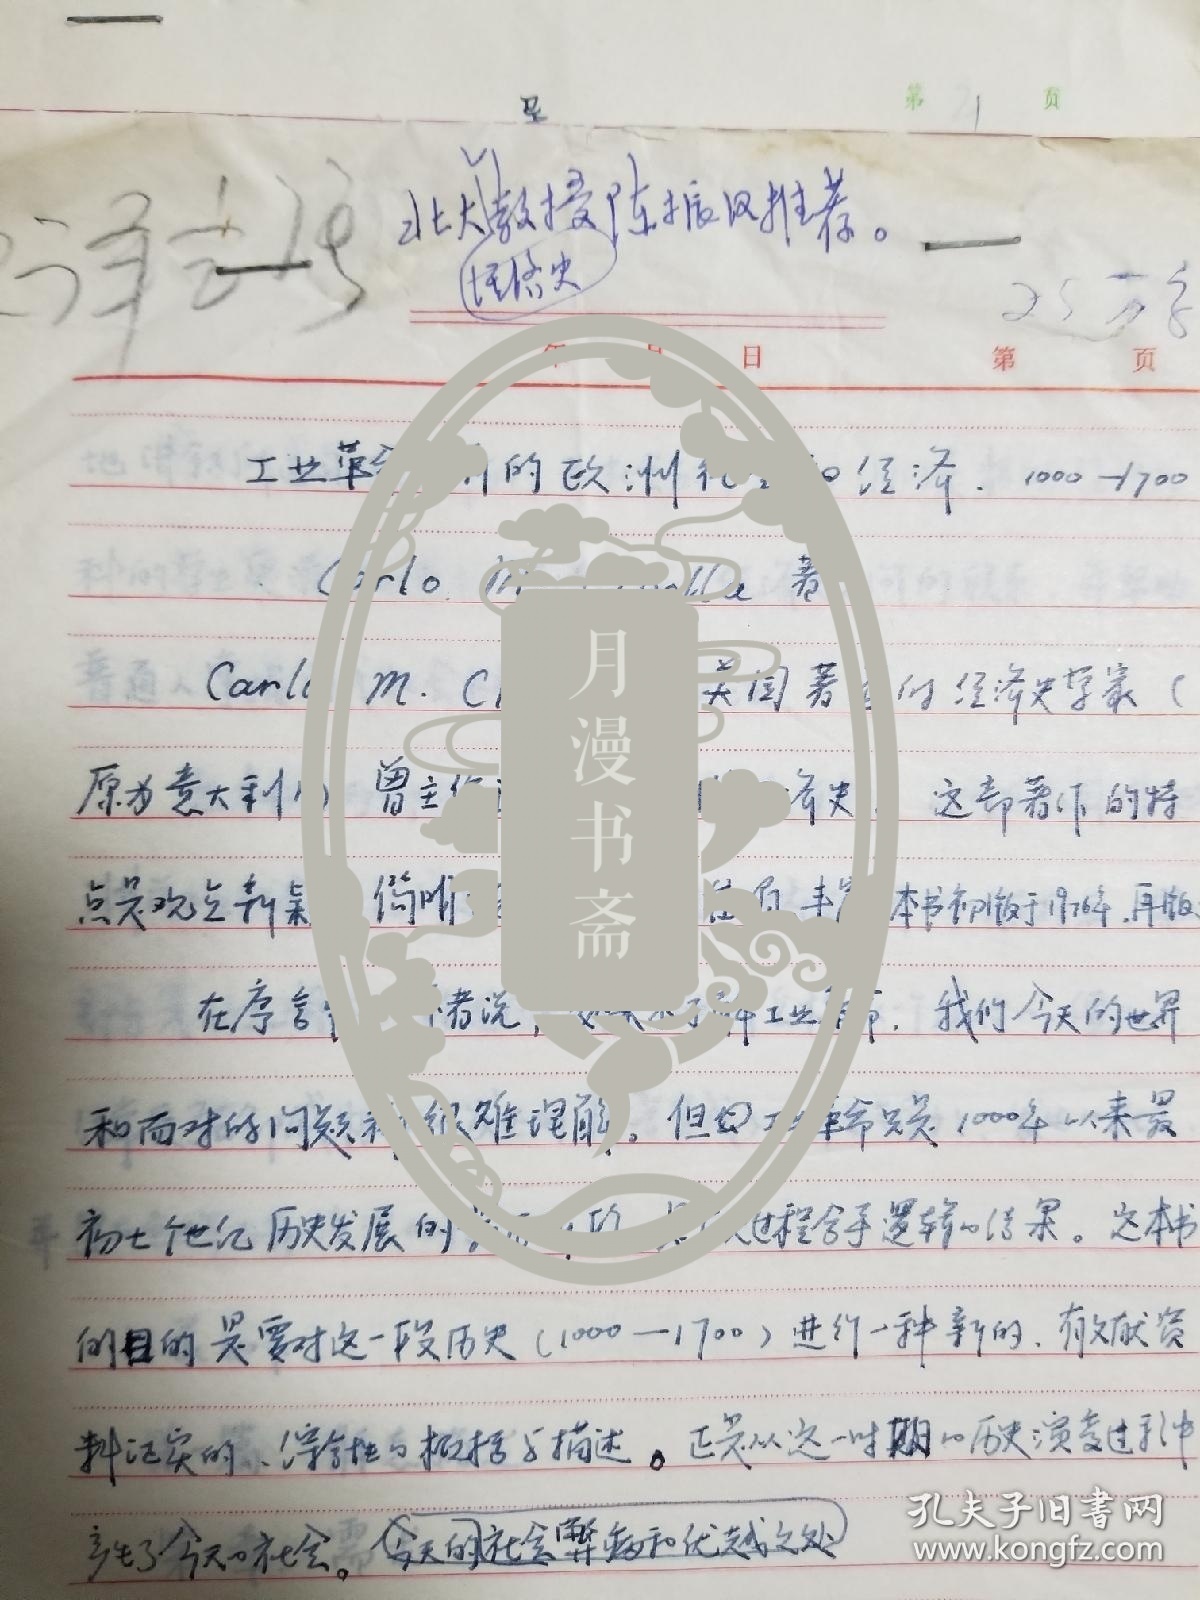 第 21 页
北大教授陈振汉推荐。
经济史
25万字
月 日 第 页
工业革命前的欧洲社会和经济、1000—1700
Carlo M. 著
Carlo M. C 美国著名的经济史学家（
原为意大利人 曾主 济史、这部著作的特
点是观点新 简 本书初版于1976年、再版
在序言 者说， 工业革命、我们今天的世界
和面对的问题 很难理解。但 工业革命只是1000年以来最
初七个世纪历史发展的 过程合乎逻辑的结果。这本书
的目的是要对这一段历史（1000—1700）进行一种新的、有文献资
料证实的、综合性的概括与描述。正是从这一时期的历史演变过程中
产生了今天的社会。今天的社会弊病和优越之处
月漫书斋
孔夫子旧书网
www.kongfz.com